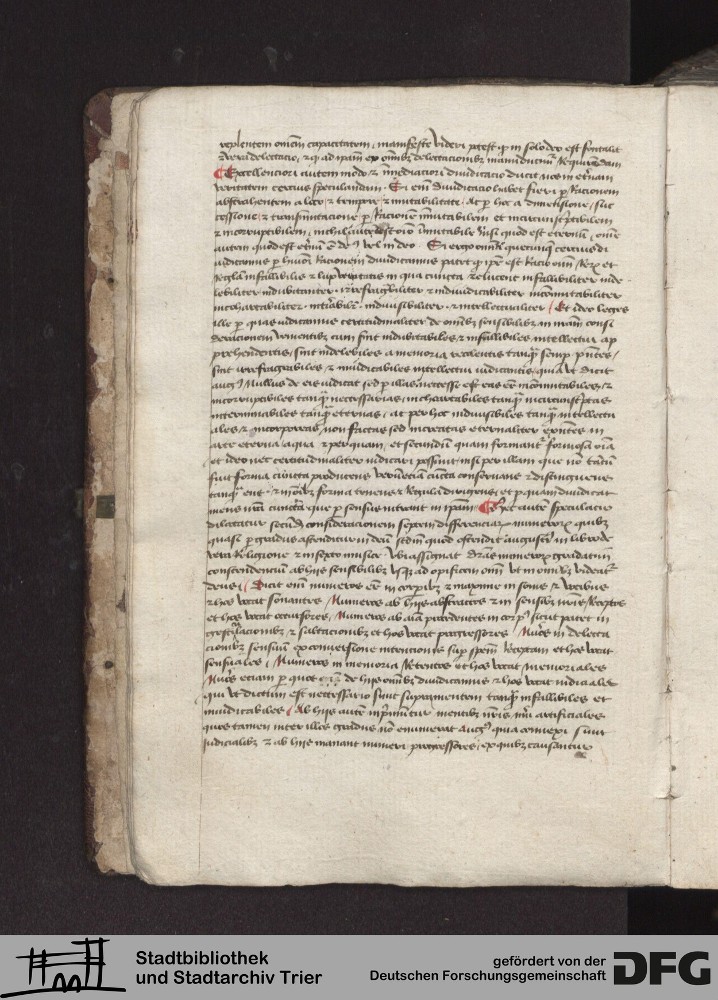 replentem omnem capacitatem, manifeste videri potest qd in solo deo est fontalis
et vera delectacio, et qd ad ipam ex omibz delectacionibz manuducimur requirendam
Excellenciori autem modo et immediaciori diiudicacio ducit nos in et'nam
veritatem cercius speculandam. Si em diiudicacio habet fieri p racionem
abstrahentem a loco et tempore et mutabilitate, ac p hoc a dimensione, suc
cessione, et transmutacione p racione immutabilem et incircumscriptibilem
et incorruptibilem, nichil aute est oio immutabile nisi quod est eternum, omne
autem quod est et'nu e de' vel in deo. Si ergo omnia quecumqz cercius di
iudicamus p huiusmodi racionem diiudicamus patet qd ipe est racio oim rerum et
regula infallibilis et lux veritatis in qua cuncta relucent infallibiliter inde
lebiliter indubitanter, irrefragabiliter et indiiudicabiliter incomutabiliter
incohartabiliter, int'iabilr, indiuisibiliter, et intellectualiter Et ideo leges
ille p quas iudicamus certitudinaliter de omibz sensibilibz in nram consi
deracionem venientibz cum sint indubitabiles et infallibiles intellectui ap
prehendentis, sint indelebiles a memoria recolentis tanqz semp pntes,
sint irrefragabiles et indiiudicabiles intellectui iudicantis, quia vt dicit
aug' Nullus de eis iudicat sed p illas, necesse est eas ee incomutabiles, et
incorruptibiles tanqz necessarias, incohartabiles tanqz incircumscriptas
interminabiles tanqz eternas, ac per hoc indiuisibiles tanqz intellectu
ales et incorporeas, non factas sed increatas eternaliter existentes in
arte eterna, a qua et per quam, et secundum quam formantur formosa oia
et ideo nec certitudinaliter iudicari possunt nisi per illam que no tantu
fuit forma cuncta producens verumeciam cuncta conseruans et distinguens
tanqz ens, in omibz forma tenens et regula dirigens, et p quam diiudicat
mens nra cuncta que p sensus intrant in ipam. Hec autem speculacio
dilatatur secundu consideracionem septem differenciarum numerorum quibz
quasi p gradus ascenditur in deum scdm quod ostendit augustinus in libro de
vera religione et in sexto musice. Vbi assignat drias numerorum gradatim
conscendencium ab hiis sensibilibz vsqz ad opificem omi vt in omibz videatur
deus. Dicit eni numeros ee in corpibz et maxime in sonis et vocibus
et hos vocat sonantes, Numeros ab hijs abstractos et in sensibz nris receptos
et hos vocat occursores, Numeros ab aia procedentes in corp' sicut patet in
gesticulacionibz et saltacionibz et hos vocat progressores Nu'os in delecta
cionibz sensuum ex conuersione intencionis sup spem receptam et hos vocat
sensuales, Numeros in memoria retentos et hos vocat memoriales
Nu'os eciam p quos de hijs omibz diiudicamus et hos vocat iudiciales
qui vt dictum est necessario sunt supra mentem tanqz infallibiles et
indiiudicabiles, Ab hijs autem imprimuntur mentibz nris nu'i artificiales
quos tamen inter illos gradus no enumerat aug' quia connexi sunt
iudicialibz et ab hijs manant numeri progressores, ex quibz causantur
Stadtbibliothek
und Stadtarchiv Trier
gefördert von der
Deutschen Forschungsgemeinschaft
DFG